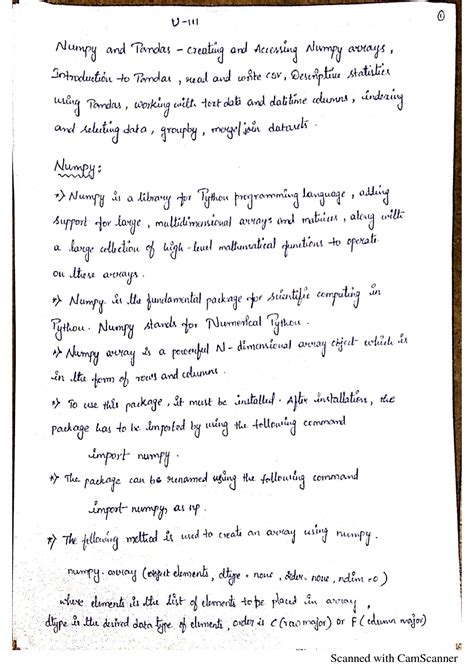 U-III
①
Numpy and Pandas - creating and Accessing Numpy arrays,
Introduction to Pandas, read and write csv, Descriptive statistics
using Pandas, working with text data and datetime columns, indexing
and selecting data, groupby, merge/join datasets.
Numpy:
*) Numpy is a library for Python programming language, adding
support for large, multidimensional arrays and matrices, along with
a large collection of high-level mathematical functions to operate
on these arrays.
*) Numpy is the fundamental package for scientific computing in
Python. Numpy stands for Numerical Python.
*) Numpy array is a powerful N-dimensional array object which is
in the form of rows and columns.
*) To use this package, it must be installed. After installation, the
package has to be imported by using the following command
import numpy.
*) The package can be renamed using the following command
import numpy as np.
*) The following method is used to create an array using numpy.
numpy.array (object elements, dtype = none, order = none, ndim = 0)
where elements is the list of elements to be placed in array,
dtype is the desired data type of elements, order is C (row major) or F (column major)
Scanned with CamScanner